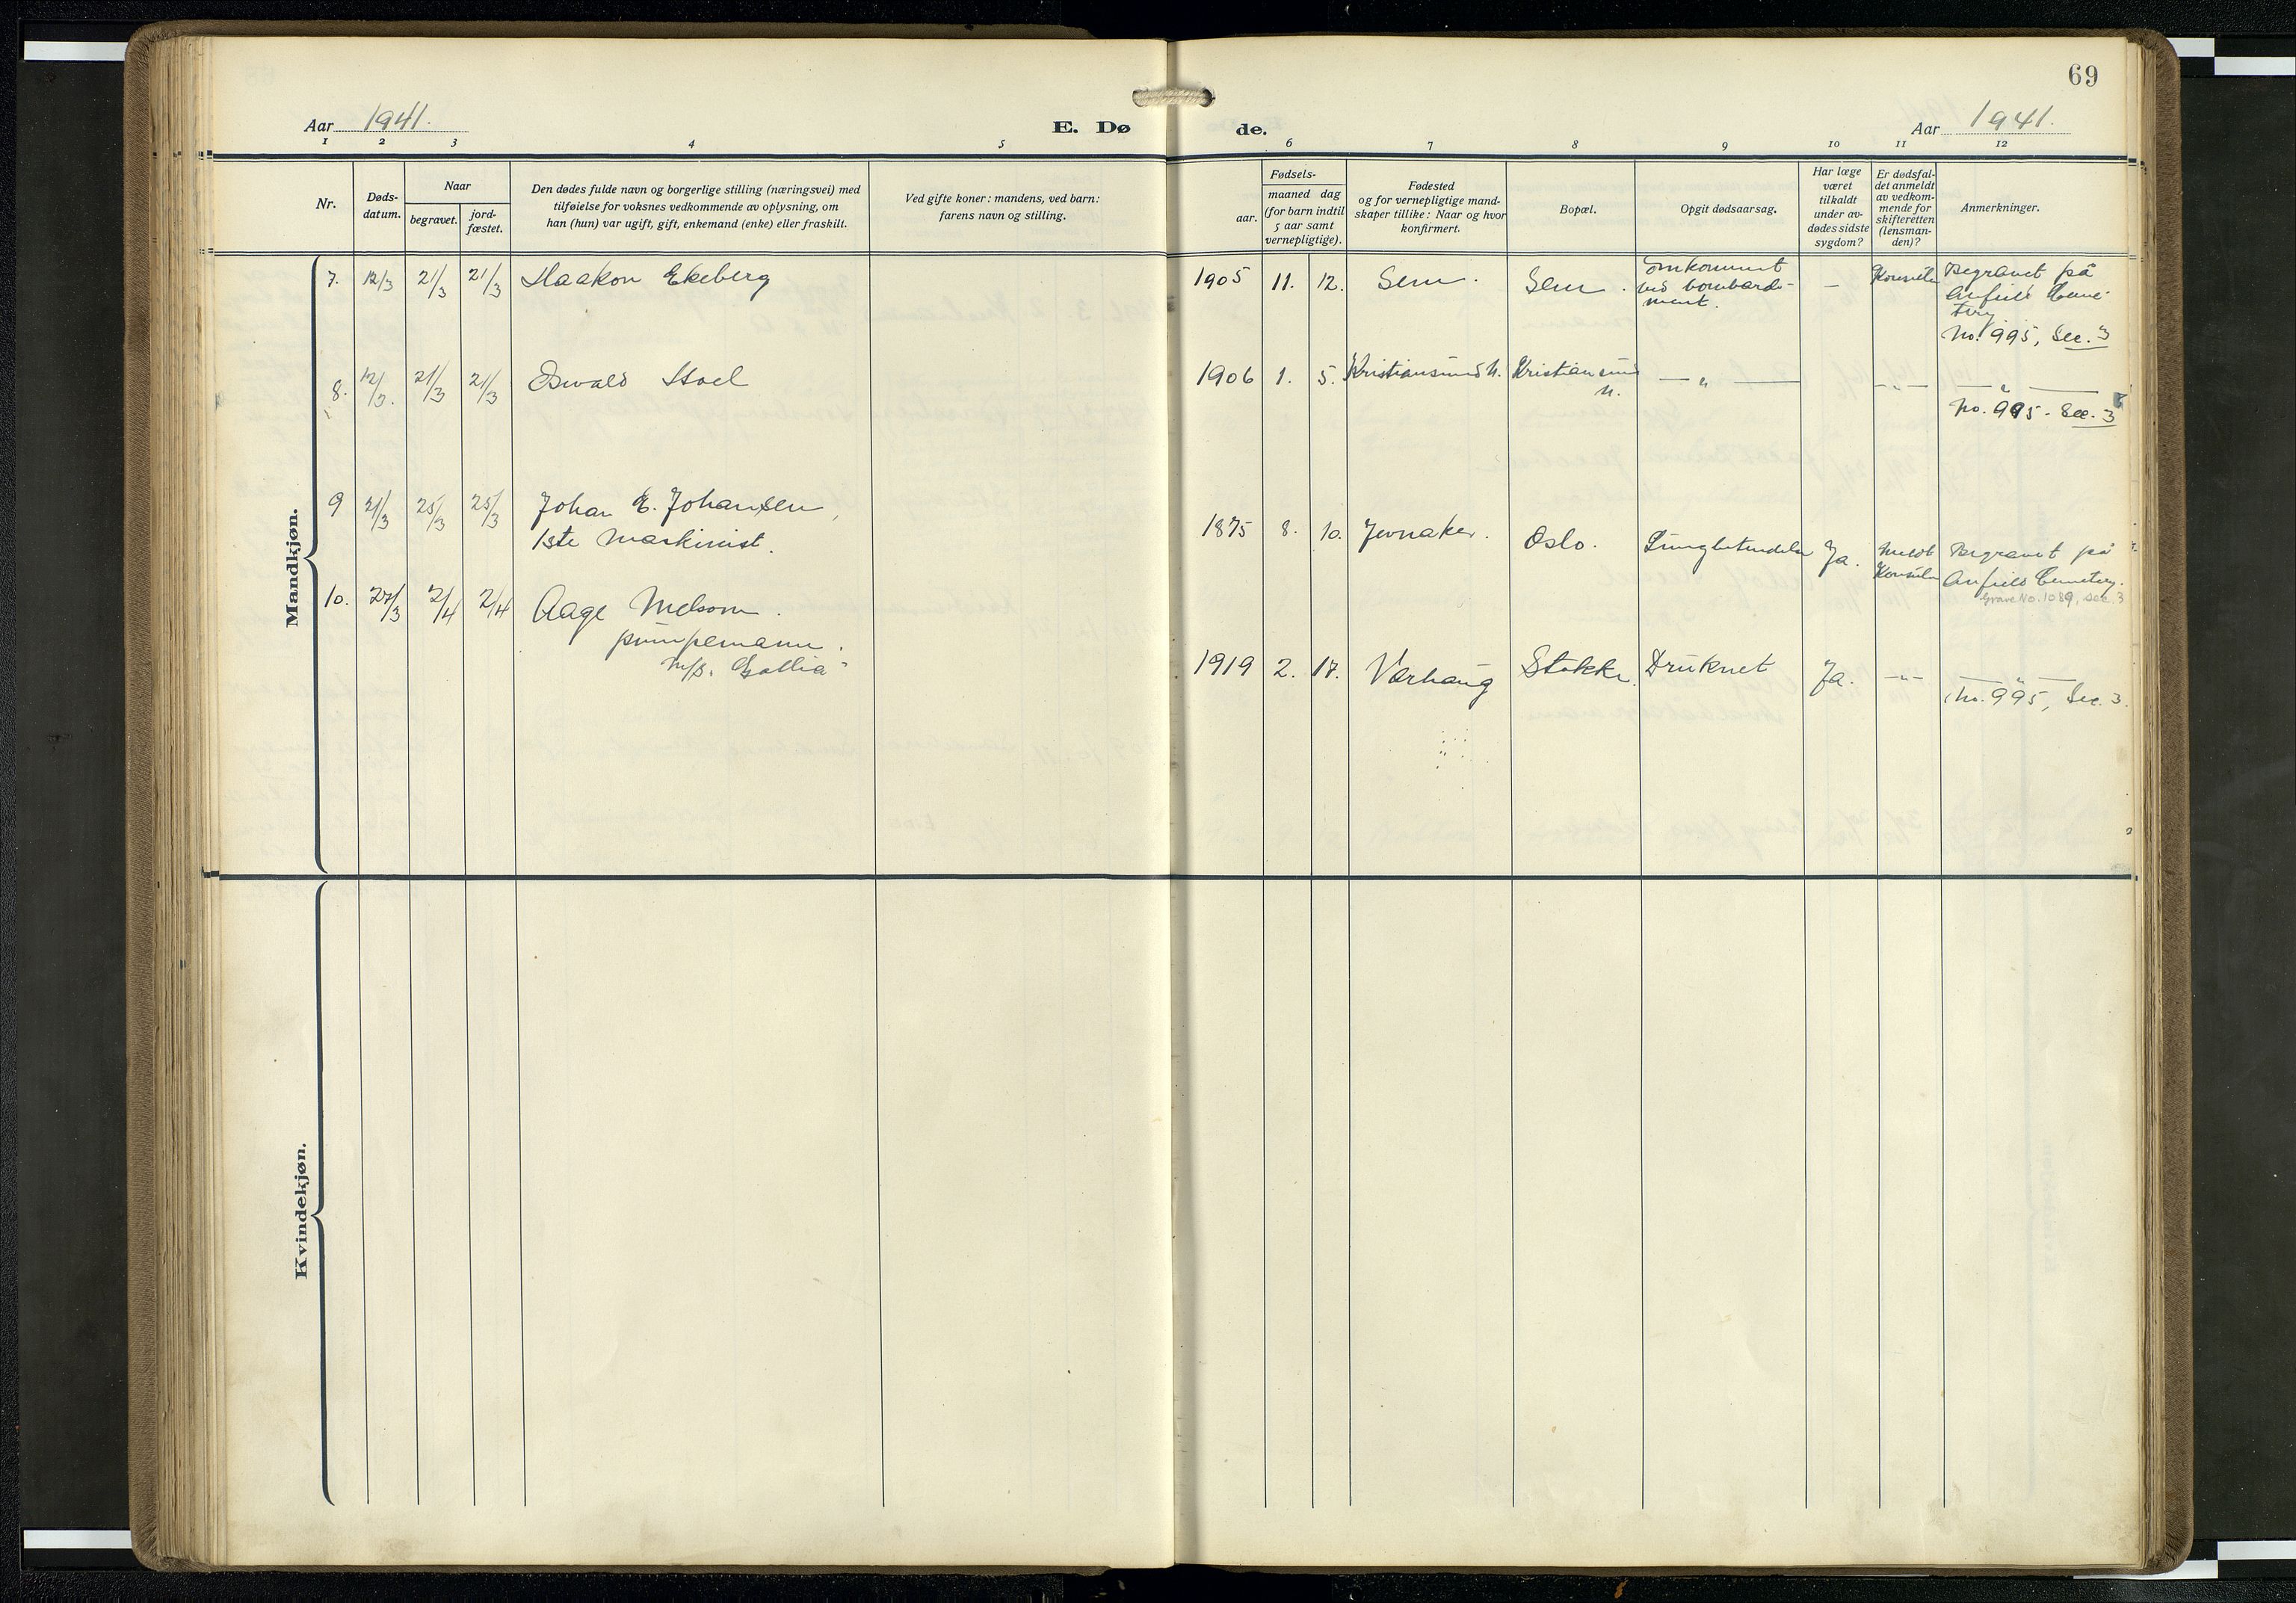 69
Aar 1941.
E. Dø de.
Aar 1941.
1 2 3 4 5 6 7 8 9 10 11 12
Nr.
Døds-
datum.
Naar
begravet.
jord-
fæstet.
Den dødes fulde navn og borgerlige stilling (næringsvei) med
tilføielse for voksnes vedkommende av oplysning, om
han (hun) var ugift, gift, enkemand (enke) eller fraskilt.
Ved gifte koner: mandens, ved barn:
farens navn og stilling.
Fødsels-
aar.
maaned dag
(for barn indtil
5 aar samt
vernepligtige).
Fødested
og for vernepligtige mand-
skaper tillike: Naar og hvor
konfirmert.
Bopæl.
Opgit dødsaarsag.
Har læge
været
tilkaldt
under av-
dødes sidste
sygdom?
Er dødsfal-
det anmeldt
av vedkom-
mende for
skifteretten
(lensman-
den)?
Anmerkninger.
Mandkjøn.
7. 12/3 21/3 21/3 Haakon Ekeberg 1905 11. 12. Sem. Sem. Omkommet
ved bombarde-
ment.
— Konsulen Begravet på
Anfield Ceme-
tery
No. 995, Sec. 3
8. 12/3. 21/3 21/3 Oswald Stoel 1906 1. 5. Kristiansund N. Kristiansund
N.
— " — — " — — " —
No. 995 - Sec. 3
9 21/3 25/3 25/3 Johan E. Johansen,
1ste Maskinist.
1875 8. 10. Jevnaker. Oslo. Lungbetendelse Ja. Meldt
Konsulen
Begravet på
Anfield Cemetery.
Grave No. 1089, sec. 3
10. 27/3 2/4 2/4 Aage Melsom.
pumpemann.
M/S. Gallia"
1919 2. 17. Varhaug Stokke. Druknet Ja. — " — — " —
No. 995, Sec. 3.
Kvindekjøn.